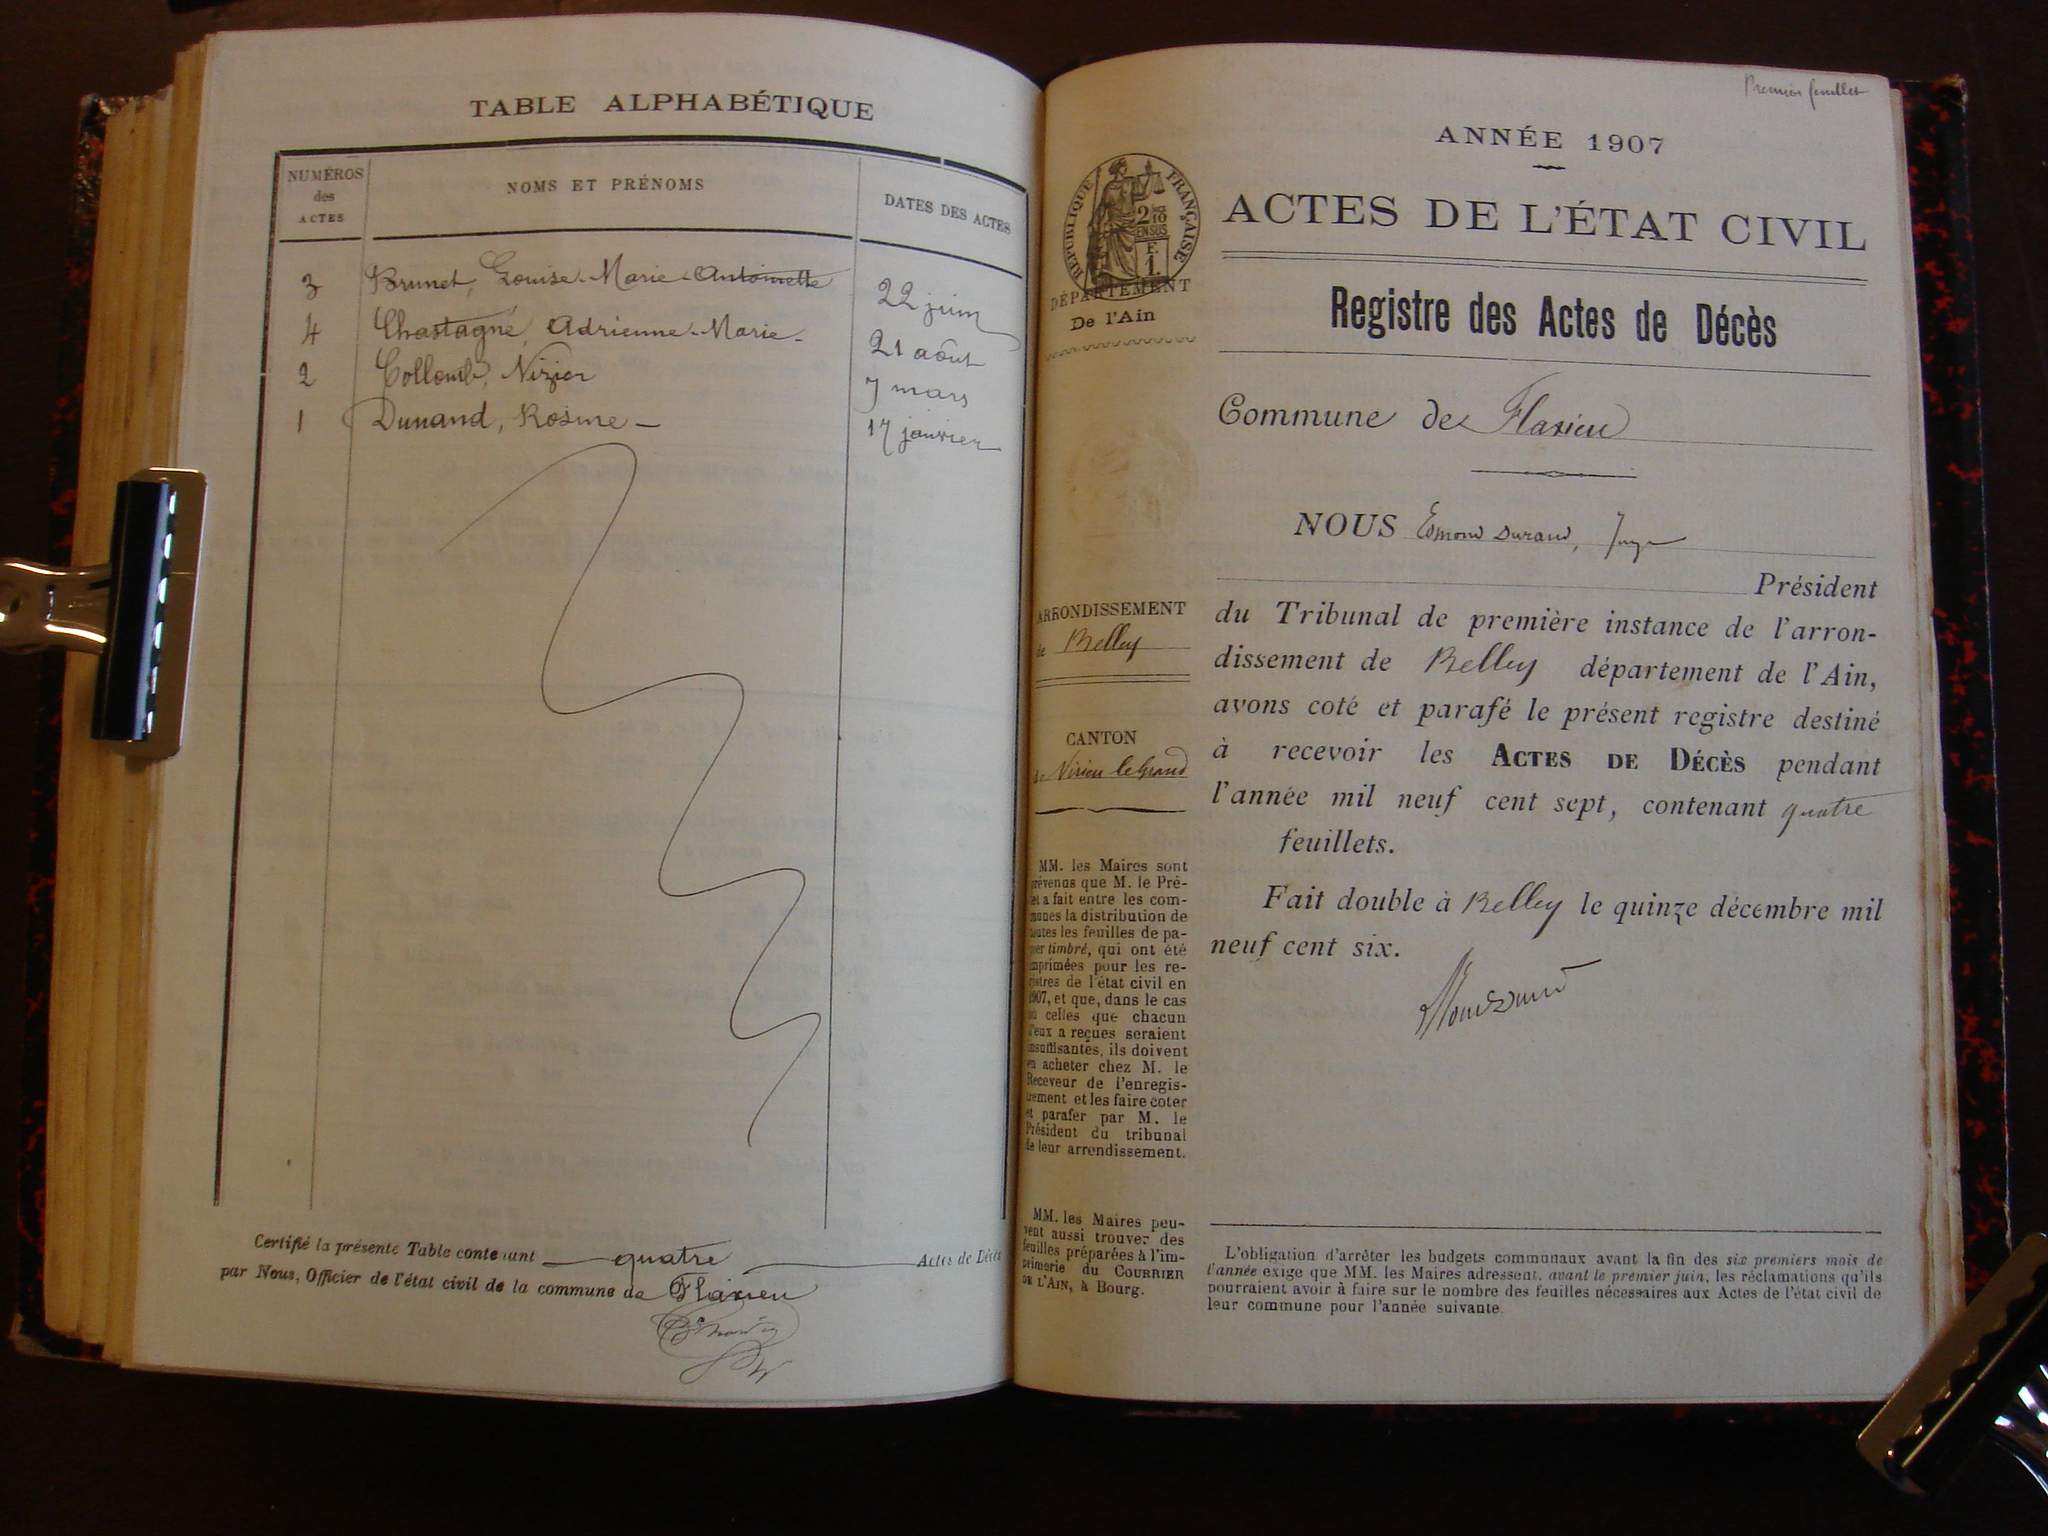 TABLE ALPHABÉTIQUE
NUMÉROS
des
ACTES
NOMS ET PRÉNOMS
DATES DES ACTES
3 Brunet, Louise-Marie-Antoinette 22 juin
4 Chastagné, Adrienne-Marie- 21 août
2 Collomb, Nizier 7 mars
1 Dunand, Rosine - 17 janvier
Certifié la présente Table contenant quatre Actes de Décès
par Nous, Officier de l'état civil de la commune de Flaxieu
Premier feuillet
ANNÉE 1907
ACTES DE L'ÉTAT CIVIL
Registre des Actes de Décès
Commune de Flaxieu
NOUS Edmond Durand, Juge
Président
du Tribunal de première instance de l'arron-
dissement de Belley département de l'Ain,
avons coté et parafé le présent registre destiné
à recevoir les ACTES DE DÉCÈS pendant
l'année mil neuf cent sept, contenant quatre
feuillets.
Fait double à Belley le quinze décembre mil
neuf cent six.
RÉPUBLIQUE FRANÇAISE
2 10es
EN SUS
F.
1.
DÉPARTEMENT
De l'Ain
ARRONDISSEMENT
de Belley
CANTON
de Virieu le Grand
MM. les Maires sont
prévenus que M. le Pré-
fet a fait entre les com-
munes la distribution de
toutes les feuilles de pa-
pier timbré, qui ont été
imprimées pour les re-
gistres de l'état civil en
1907, et que, dans le cas
où celles que chacun
d'eux a reçues seraient
insuffisantes, ils doivent
en acheter chez M. le
Receveur de l'enregis-
trement et les faire coter
et parafer par M. le
Président du tribunal
de leur arrondissement.
MM. les Maires peu-
vent aussi trouver des
feuilles préparées à l'im-
primerie du COURRIER
DE L'AIN, à Bourg.
L'obligation d'arrêter les budgets communaux avant la fin des six premiers mois de
l'année exige que MM. les Maires adressent, avant le premier juin, les réclamations qu'ils
pourraient avoir à faire sur le nombre des feuilles nécessaires aux Actes de l'état civil de
leur commune pour l'année suivante.